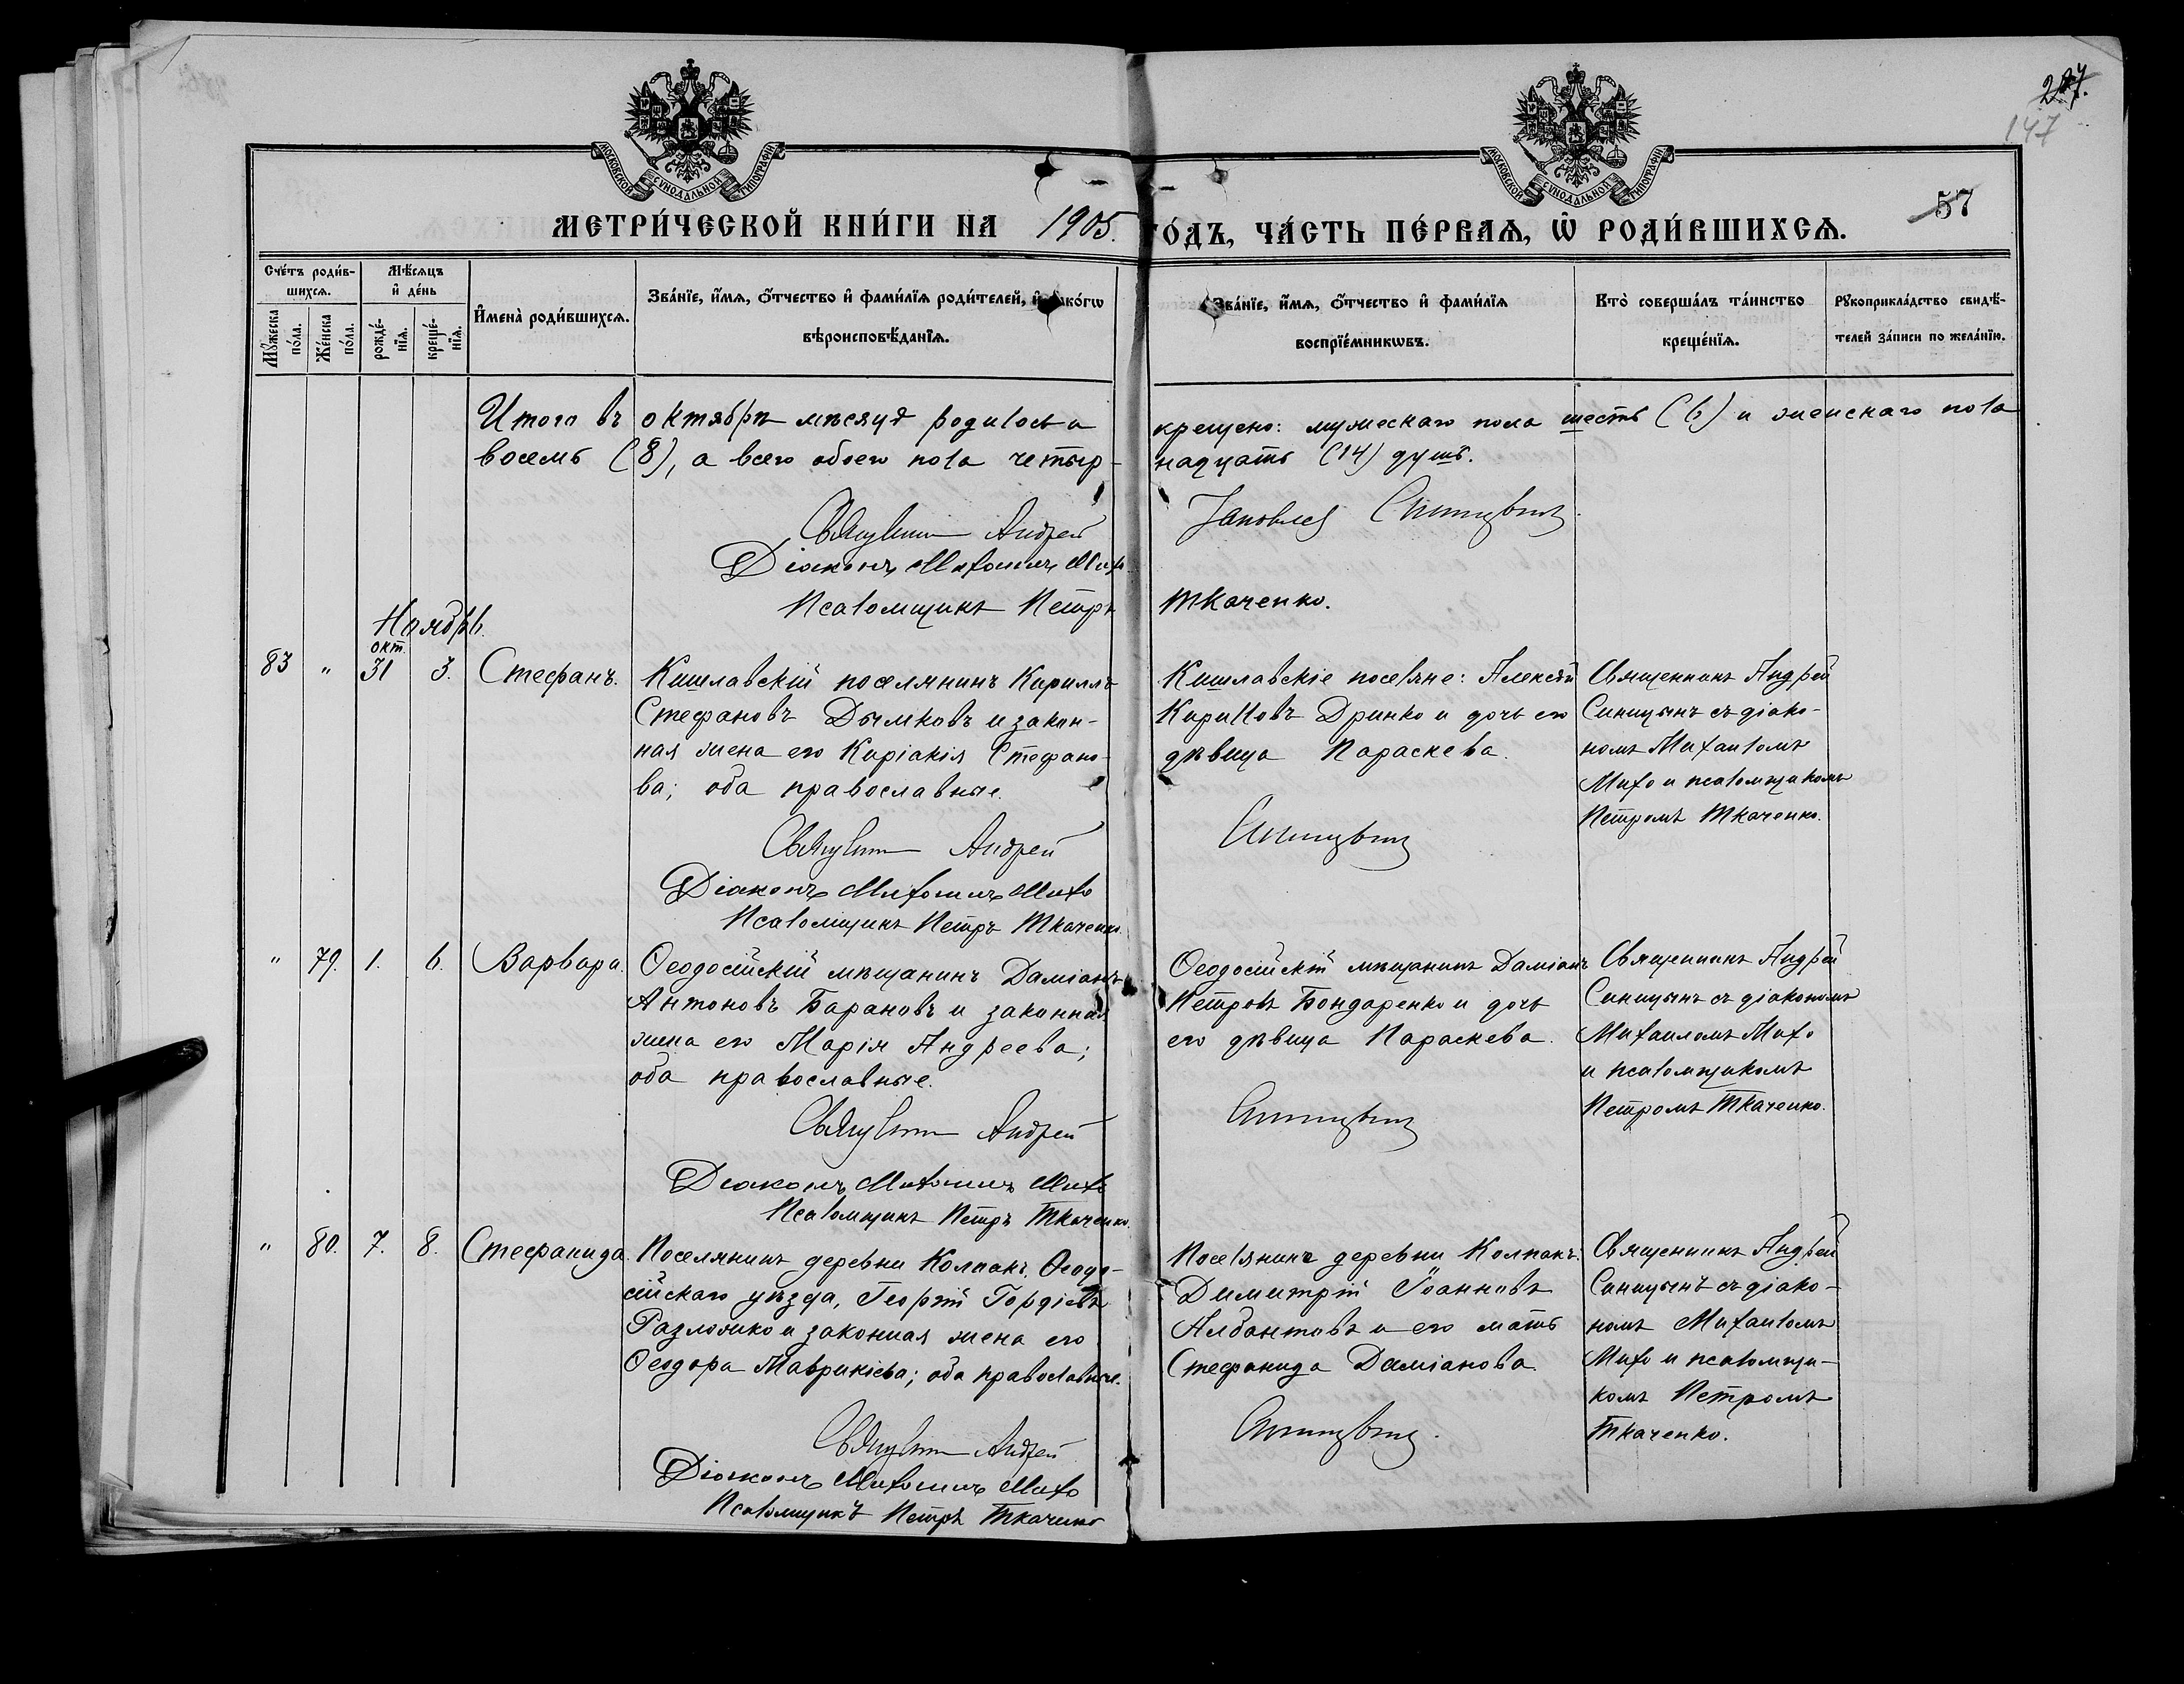 247.
147
57
МОСКОВСКОЙ СѴНОДАЛЬНОЙ ТИПОГРАФІИ
МОСКОВСКОЙ СѴНОДАЛЬНОЙ ТИПОГРАФІИ
МЕТРИ́ЧЕСКОЙ КНИ́ГИ НА 1905. ГО́ДЪ, ЧА́СТЬ ПЕ́РВАѦ, Ѿ РОДИ́ВШИХСѦ.
Счéтъ роди́в-
шихсѧ.
Мꙋ́жеска по́ла.
Же́нска по́ла.
Мѣ́сѧцъ
и҆ де́нь
рожде́-
нїѧ.
креще́-
нїѧ.
И҆мена̀ роди́вшихсѧ.
Зва́нїе, и҆́мѧ, ѻ҆́тчество и҆ фами́лїѧ роди́телей, и҆ како́гѡ
вѣроисповѣ́данїѧ.
Зва́нїе, и҆́мѧ, ѻ҆́тчество и҆ фами́лїѧ
воспрїе́мникѡвъ.
Кто̀ соверша́лъ та́инство
креще́нїѧ.
Рꙋкоприкла́дство свидѣ́-
телей за́писи по жела́нїю.
Итого въ октябрѣ мѣсяцѣ родилось и крещено: мужескаго пола шесть (6) и женскаго пола
восемь (8), а всего обоего пола четыр- надцать (14) душъ.
Священникъ Андрей Яковлев Синицынъ
Діаконъ Михаилъ Михо
Псаломщикъ Петръ Ткаченко.
Ноябрь.
83 " окт. 31 3. Стефанъ.
Кишлавскій поселянинъ Кириллъ
Стефановъ Дымковъ и закон-
ная жена его Киріакія Стефано-
ва; оба православные.
Кишлавскіе поселяне: Алексѣй
Кирилловъ Дринко и дочь его
дѣвица Параскева.
Священникъ Андрей
Синицынъ съ діако-
номъ Михаиломъ
Михо и псаломщикомъ
Петромъ Ткаченко.
Священникъ Андрей Синицынъ
Діаконъ Михаилъ Михо
Псаломщикъ Петръ Ткаченко.
" 79. 1. 6. Варвара.
Ѳеодосійскій мѣщанинъ Даміанъ
Антоновъ Барановъ и законная
жена его Марія Андреева;
оба православные.
Ѳеодосійскій мѣщанинъ Даміанъ
Петровъ Бондаренко и дочь
его дѣвица Параскева.
Священникъ Андрей
Синицынъ съ діакономъ
Михаиломъ Михо
и псаломщикомъ
Петромъ Ткаченко.
Священникъ Андрей Синицынъ
Діаконъ Михаилъ Михо
Псаломщикъ Петръ Ткаченко.
" 80. 7. 8. Стефанида.
Поселянинъ деревни Колпакъ, Ѳеодо-
сійскаго уѣзда, Георгій Гордіевъ
Разложко и законная жена его
Ѳеодора Маврикіева; оба православные.
Поселянинъ деревни Колпакъ:
Димитрій Іоанновъ
Албантовъ и его мать
Стефанида Даміанова.
Священникъ Андрей
Синицынъ съ діако-
номъ Михаиломъ
Михо и псаломщи-
комъ Петромъ
Ткаченко.
Священникъ Андрей Синицынъ.
Діаконъ Михаилъ Михо
Псаломщикъ Петръ Ткаченко